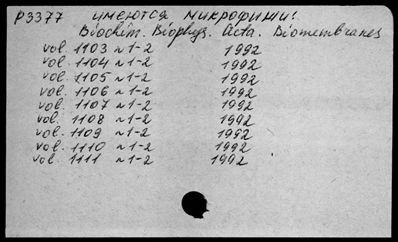 P3377 имеются микрофиши!
Biochim. Biophys. Acta. Biomembranes
vol. 1103 N 1-2 1992
vol. 1104 N 1-2 1992
vol. 1105 N 1-2 1992
vol. 1106 N 1-2 1992
vol. 1107 N 1-2 1992
vol. 1108 N 1-2 1992
vol. 1109 N 1-2 1992
vol. 1110 N 1-2 1992
vol. 1111 N 1-2 1992